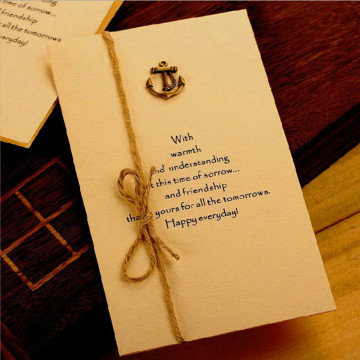 of sorrow...
friendship
the tomorrows.
everyday!
With
warmth
nd understanding
t this time of sorrow...
and friendship
tha yours for all the tomorrows.
Happy everyday!